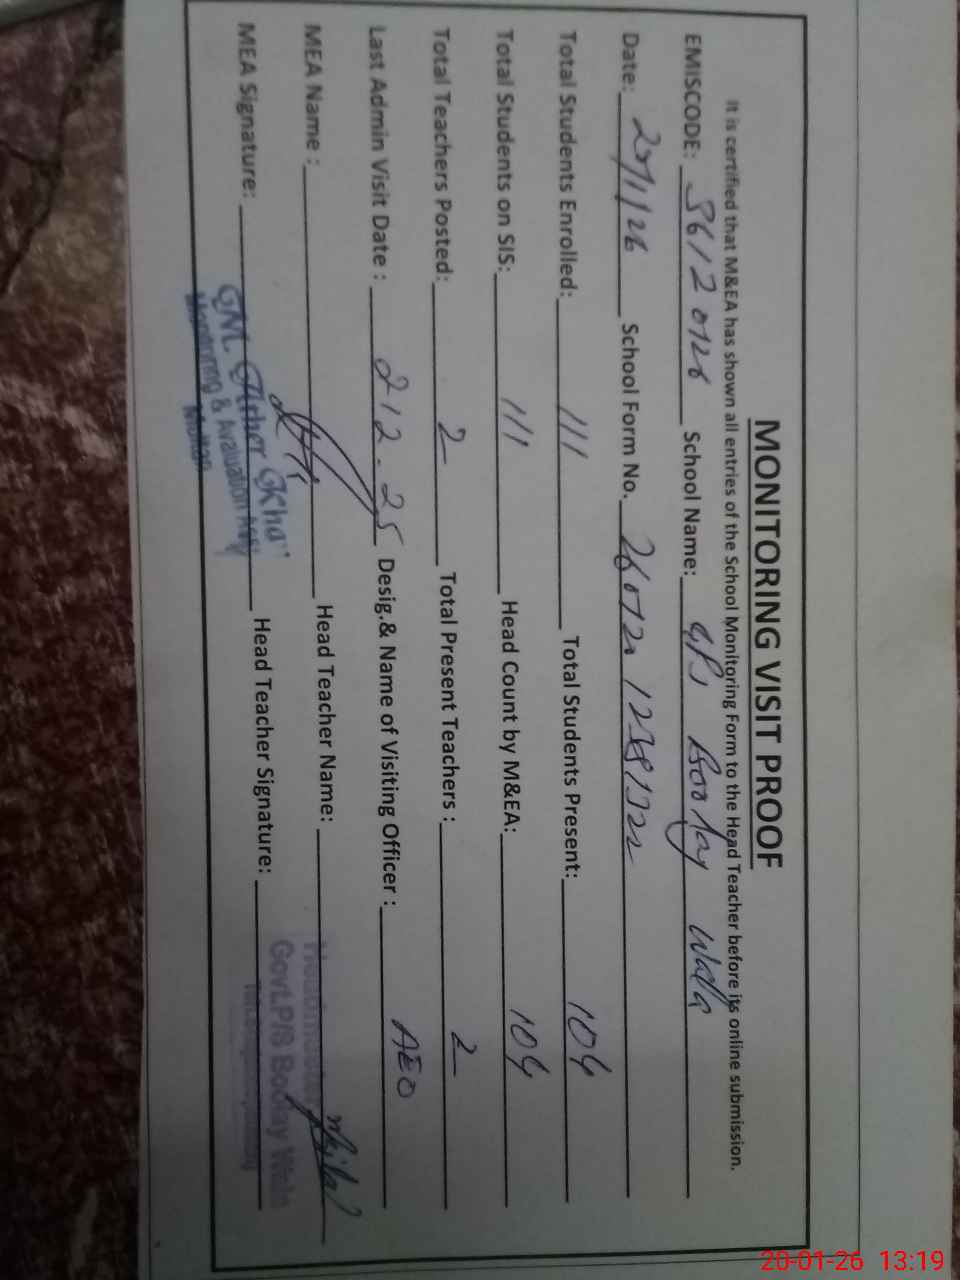 MONITORING VISIT PROOF
It is certified that M&EA has shown all entries of the School Monitoring Form to the Head Teacher before its online submission.
EMISCODE: 36120126 School Name: GPS Booday Wala
Date: 20/1/26 School Form No.
Total Students Enrolled: 111 Total Students Present: 104
Total Students on SIS: 111 Head Count by M&EA: 104
Total Teachers Posted: 2 Total Present Teachers : 2
Last Admin Visit Date : 212.25 Desig.& Name of Visiting Officer : AEO
MEA Name : Head Teacher Name:
MEA Signature: Head Teacher Signature:
Monitoring &
Multan
Govt.P/S Booday Wala
20-01-26 13:19